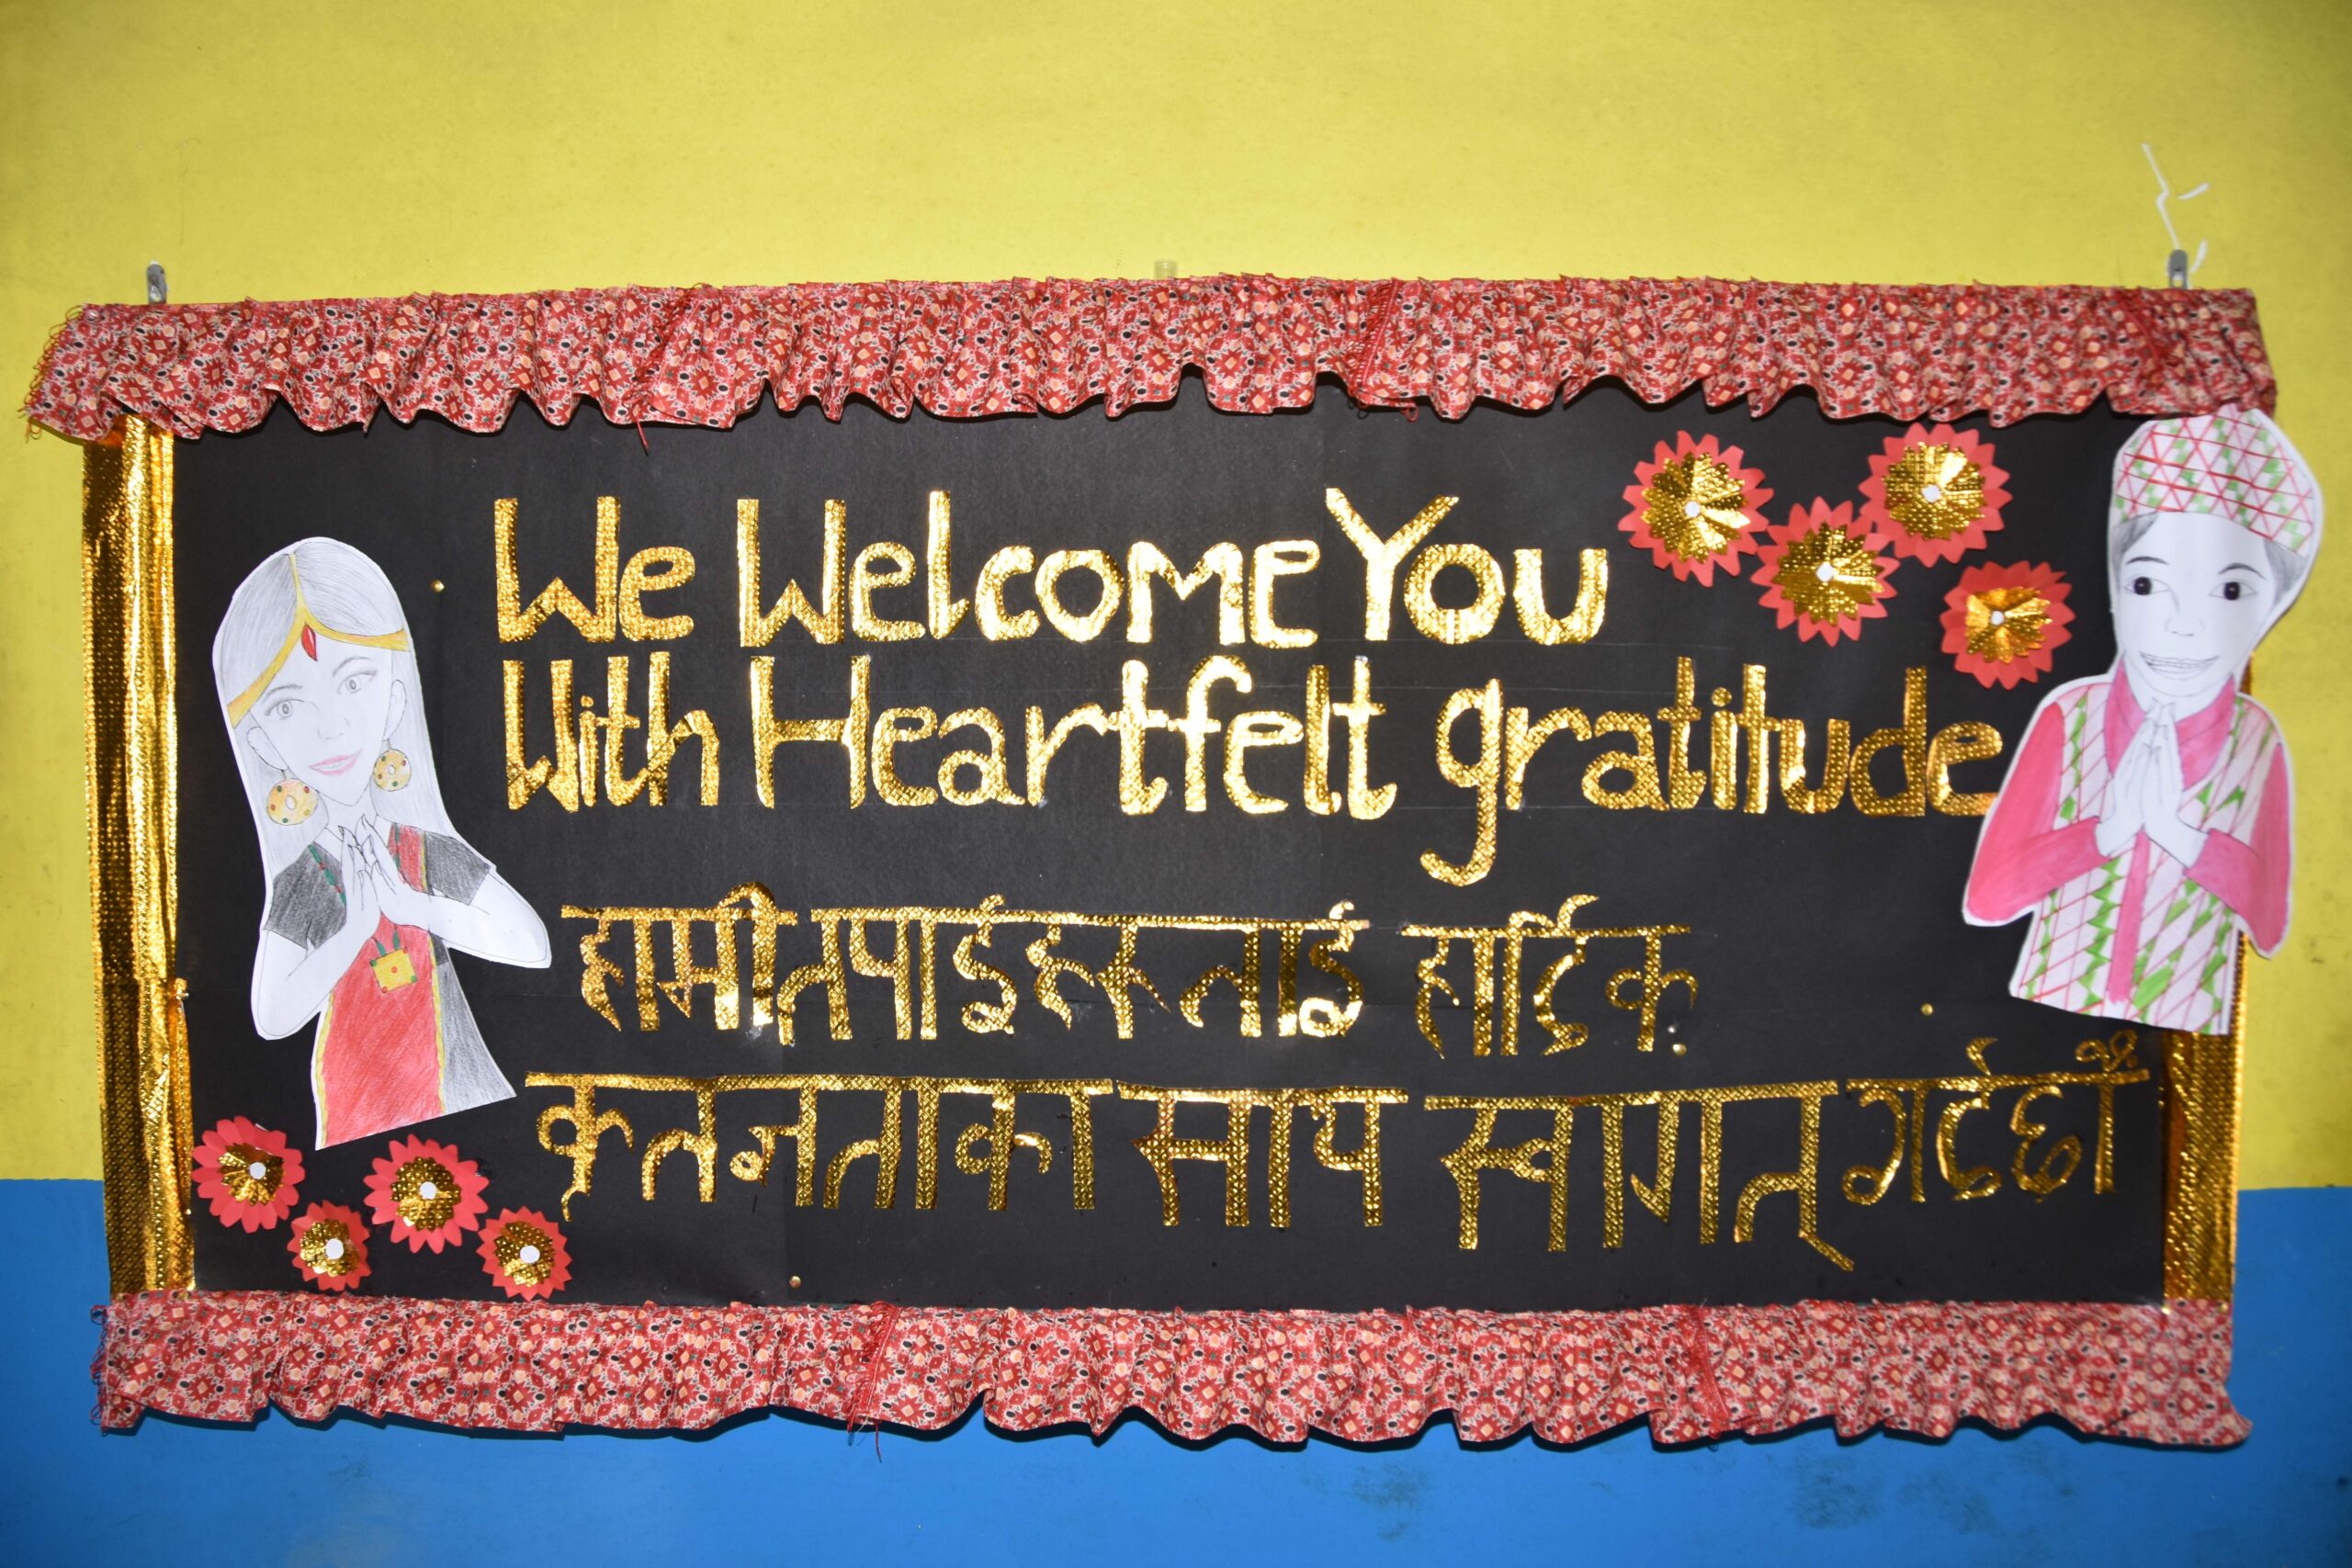 We Welcome You
With Heartfelt gratitude
हामी तपाईहरूलाई हार्दिक
कृतज्ञताका साथ स्वागत् गर्दछौं